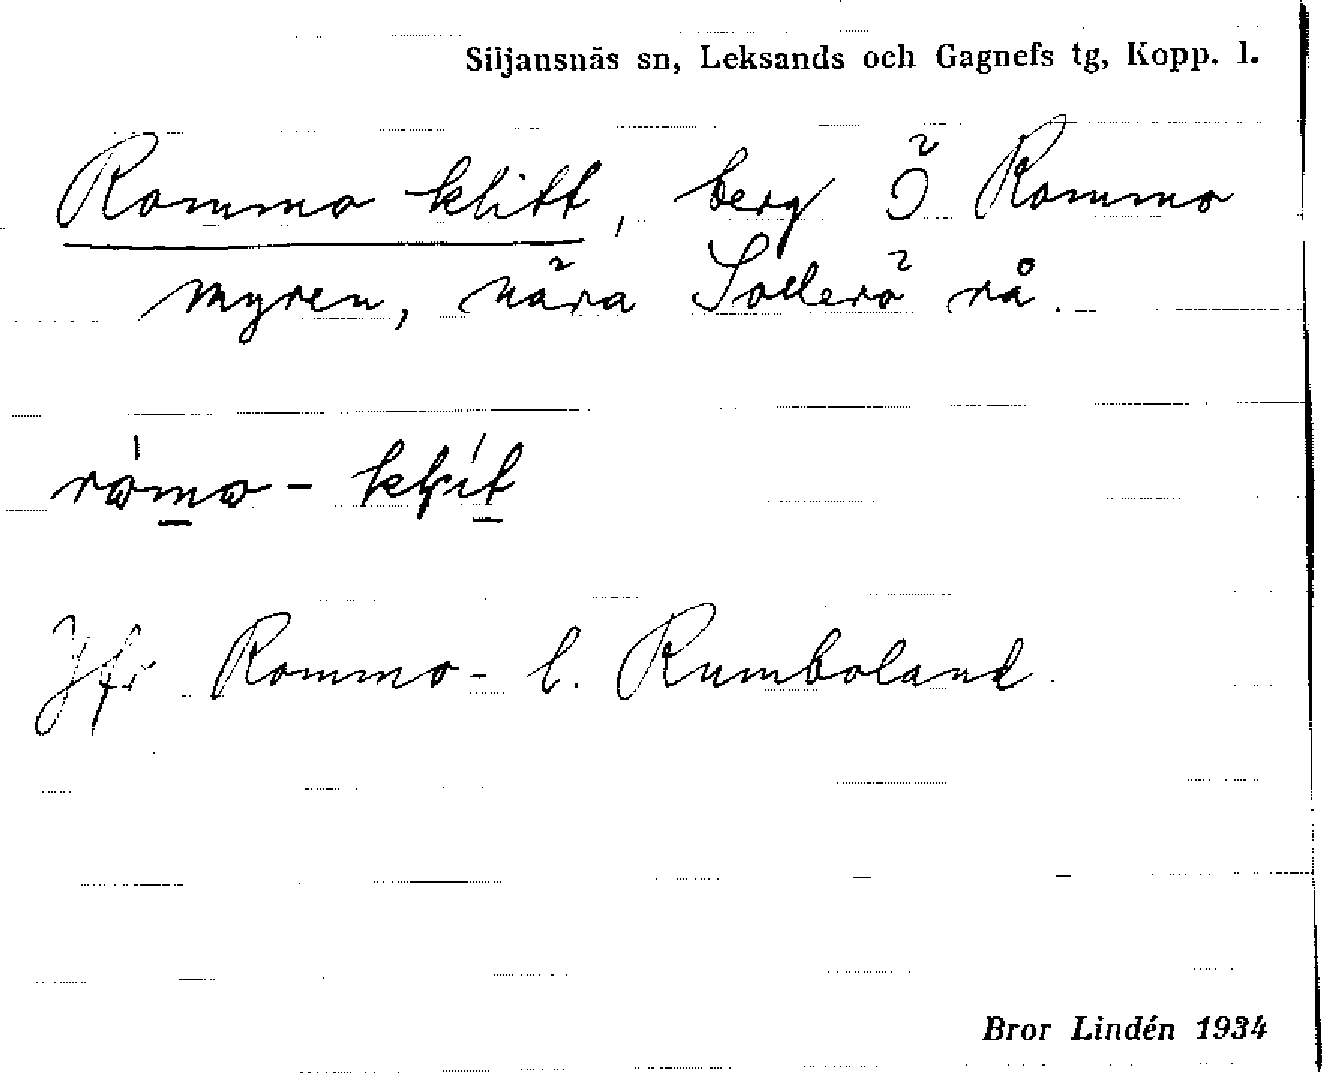 Siljansnäs sn, Leksands och Gagnefs tg, Kopp. l.
Rommo klitt, berg Ö Rommo
myren, nära Solleröˊ rå.
Jfr Rommo- l. Rumboland
Bror Lindén 1934